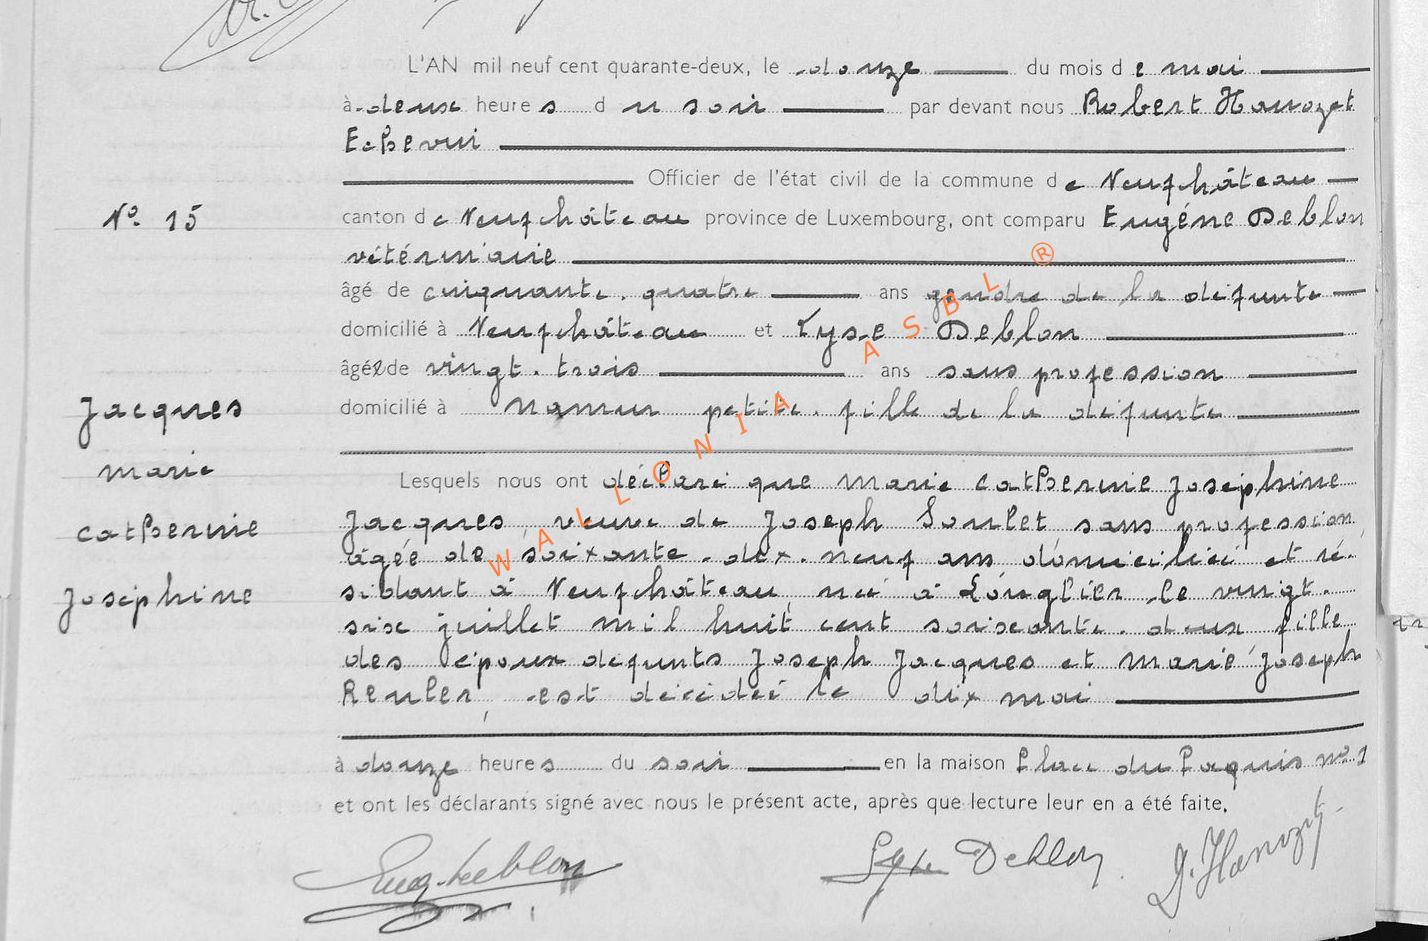 L'AN mil neuf cent quarante-deux, le douze du mois d e mai
à deux heure s d u soir par devant nous Robert Hanozet
Echevin
Officier de l'état civil de la commune d e Neufchâteau
N° 15
canton d e Neufchâteau province de Luxembourg, ont comparu Eugéne Deblon
vétérinaire
âgé de cinquante. quatre ans gendre de la défunte
domicilié à Neufchâteau et Lyse Deblon
âgée de vingt. trois ans sans profession
Jacques
domicilié à Namur petite. fille de la défunte
marie
Lesquels nous ont déclaré que marie catherine Joséphine
catherine
Jacques, veuve de Joseph Soulet sans profession
âgée de soixante. dix. neuf ans domiciliée et ré-
Joséphine
sidant à Neufchâteau, née à Longlier le vingt.
six juillet mil huit cent soixante. deux fille
des époux défunts Joseph Jacques et Marie Joseph
Reuler, est décédée le dix mai
à douze heures du soir en la maison Place du Paquis n° 1
et ont les déclarants signé avec nous le présent acte, après que lecture leur en a été faite.
Eug. Deblon Lyse Deblon Hanozet
WALLONIA ASBL ®